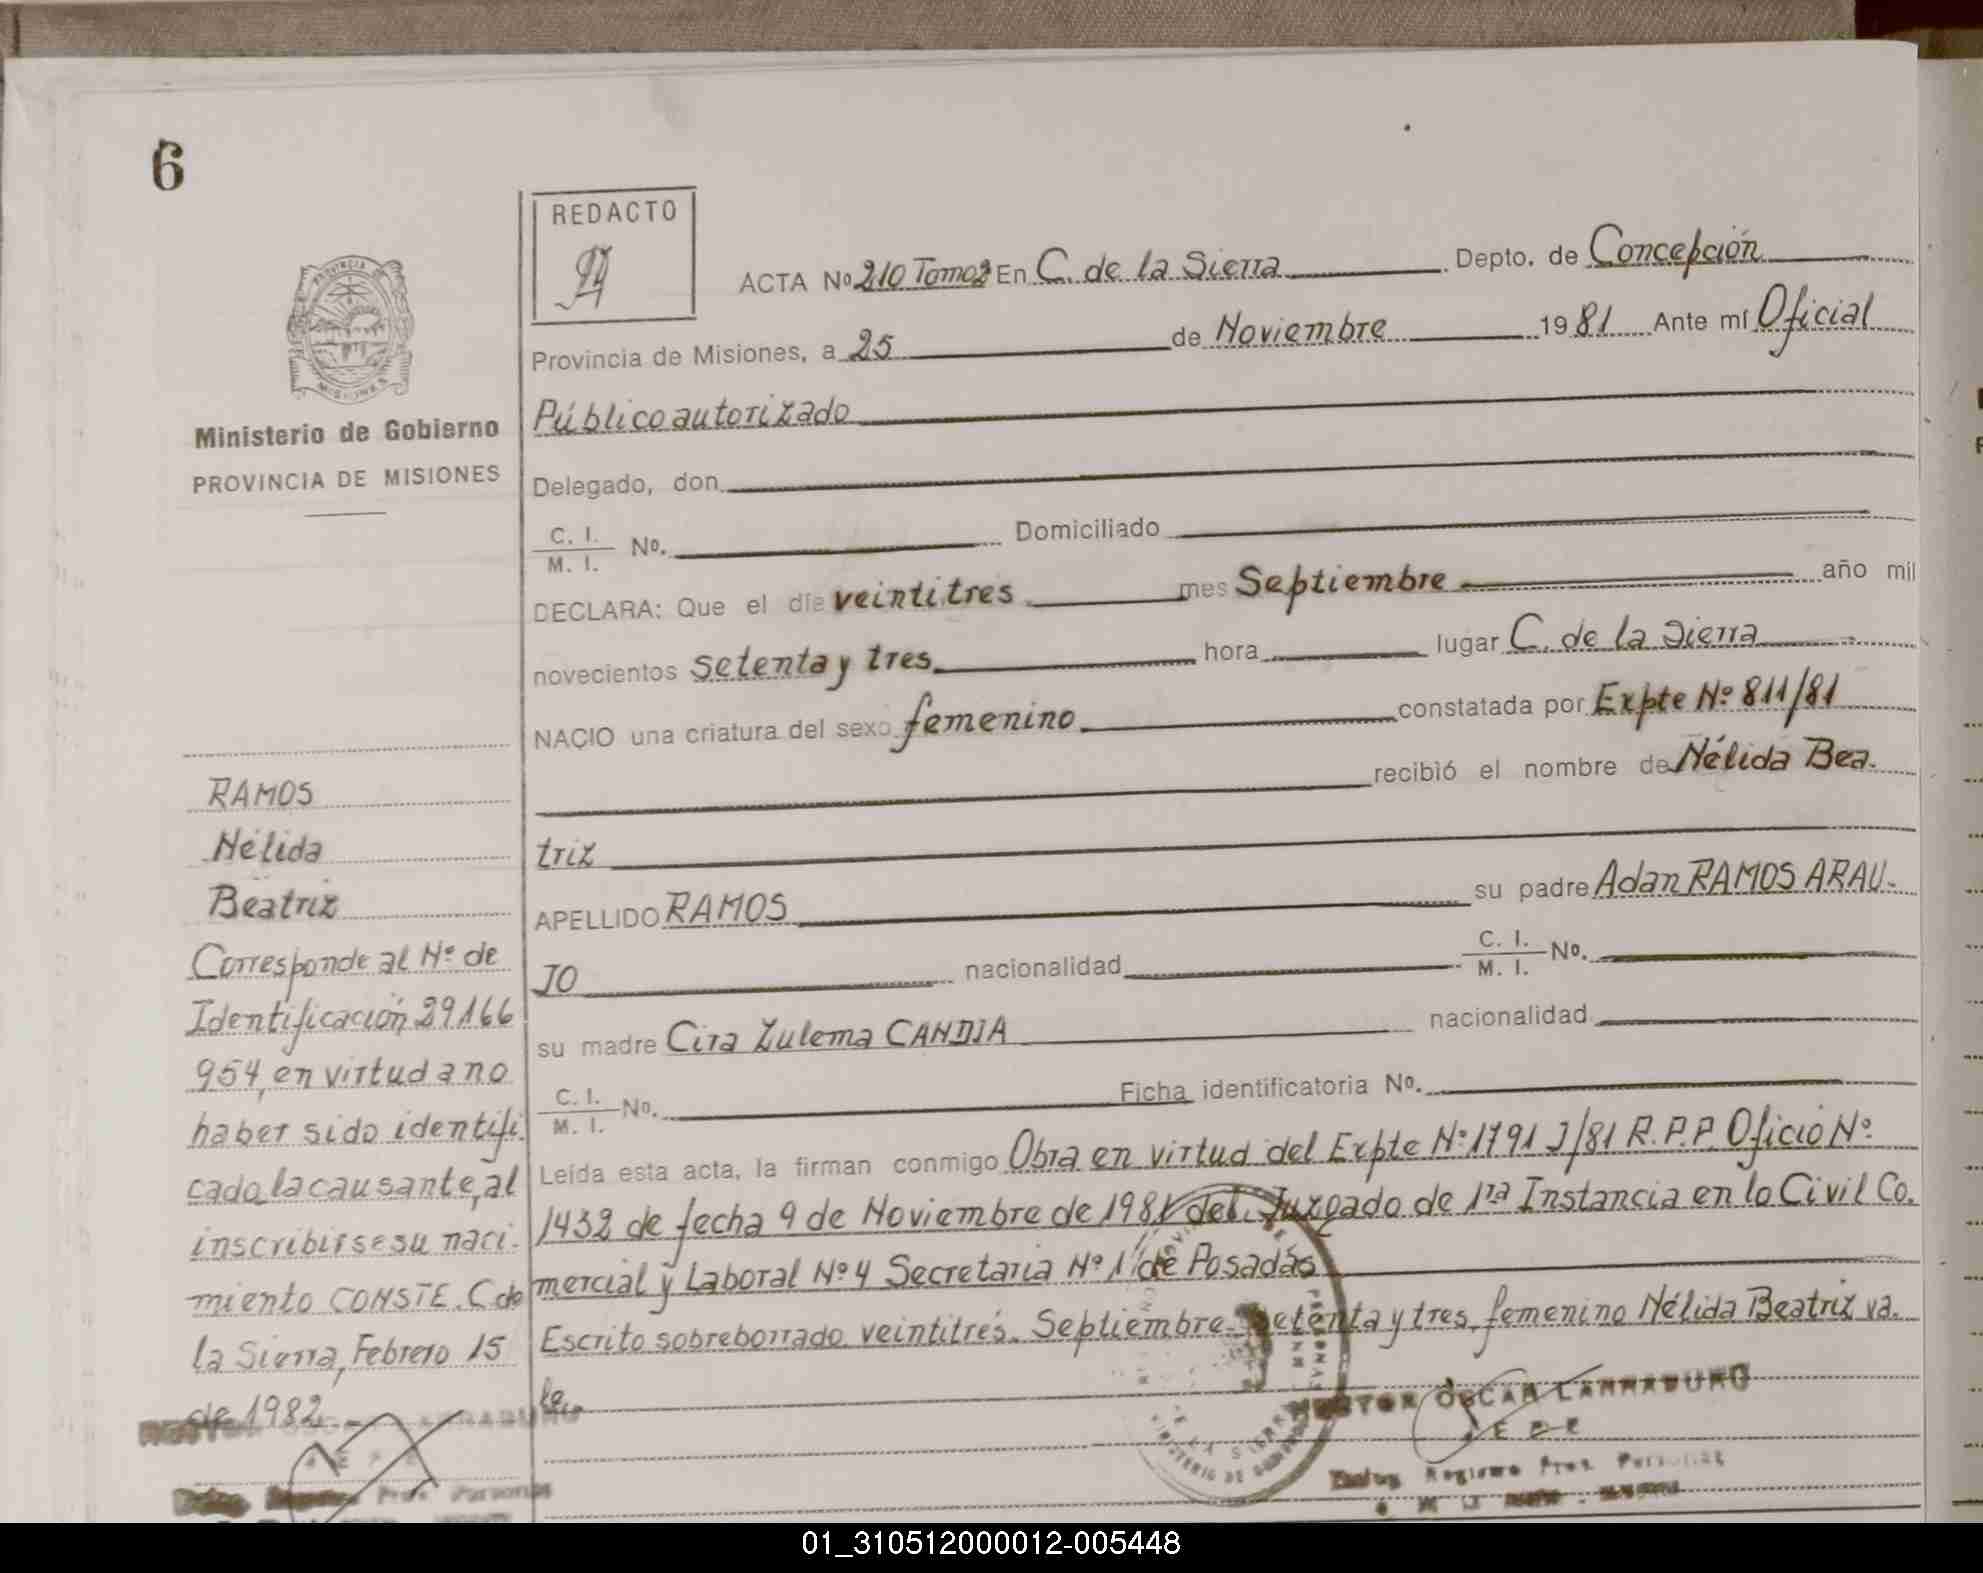 6
REDACTO
PROVINCIA DE
MISIONES
Ministerio de Gobierno
PROVINCIA DE MISIONES
RAMOS
Nélida
Beatriz
Corresponde al Nº de
Identificación 29166
954, en virtud a no
haber sido identifi.
cada la causante, al
inscribirse su naci.
miento CONSTE. C de
la Sierra, Febrero 15
de 1982
ACTA Nº 210 Tomo 2 En C. de la Sierra Depto. de Concepción
Provincia de Misiones, a 25 de Noviembre 1981 Ante mí Oficial
Público autorizado
Delegado, don
C. I.
M. I. Nº. Domiciliado
DECLARA: Que el día veintitres mes Septiembre año mil
novecientos setenta y tres hora lugar C. de la Sierra
NACIO una criatura del sexo femenino constatada por Expte Nº 811/81
recibió el nombre de Nélida Bea.
triz
APELLIDO RAMOS su padre Adan RAMOS ARAU-
JO nacionalidad C. I.
M. I. Nº.
su madre Cira Zulema CANDIA nacionalidad
C. I.
M. I. Nº. Ficha identificatoria Nº.
Leída esta acta, la firman conmigo Obra en virtud del Expte Nº 1791 J/81 R.P.P. Oficio Nº
1432 de fecha 9 de Noviembre de 1981 del Juzgado de 1ra Instancia en lo Civil Co.
mercial y Laboral Nº 4 Secretaria Nº 1 de Posadas
Escrito sobreborrado veintitrés. Septiembre. Setenta y tres, femenino Nélida Beatriz va.
le.
OSCAR LARRABURO
JEFE
Registro Prov. Personas
01_310512000012-005448